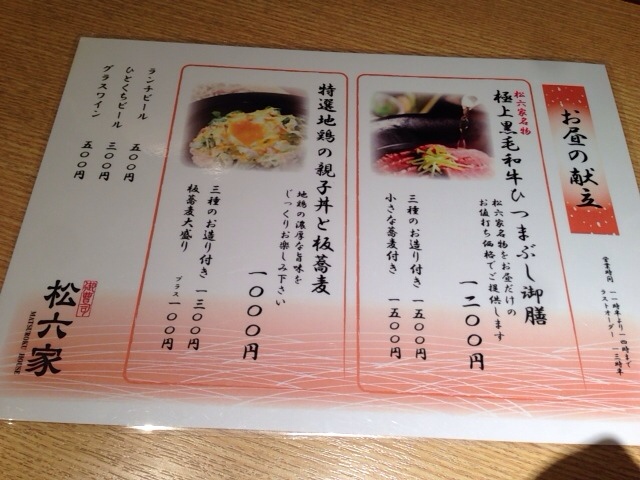 お昼の献立
営業時間 一一時半より一四時まで
ラストオーダー 一三時半
松六家名物
極上黒毛和牛ひつまぶし御膳
松六家名物をお昼だけの
お値打ち価格でご提供します
一二〇〇円
三種のお造り付き 一五〇〇円
小さな蕎麦付き 一五〇〇円
特選地鶏の親子丼と板蕎麦
地鶏の濃厚な旨味を
じっくりお楽しみ下さい
一〇〇〇円
三種のお造り付き 一三〇〇円
板蕎麦大盛り プラス一〇〇円
ランチビール 五〇〇円
ひとくちビール 三〇〇円
グラスワイン 五〇〇円
松六家
MATSUROKU HOUSE